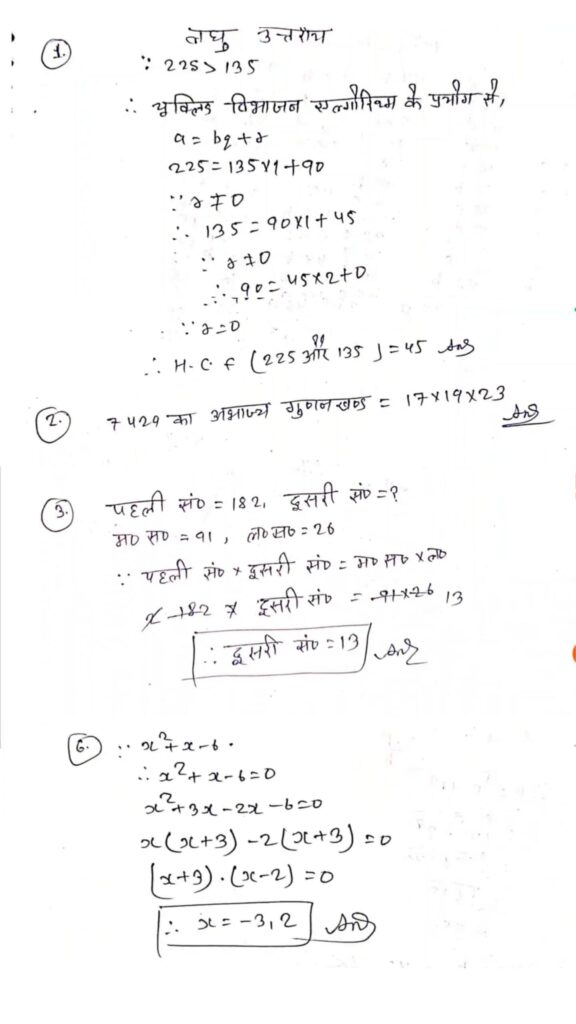 लघु उत्तरीय
1.
∵ 225 > 135
∴ यूक्लिड विभाजन एल्गोरिथ्म के प्रयोग से,
a = bq + r
225 = 135×1 + 90
∵ r ≠ 0
∴ 135 = 90×1 + 45
∵ r ≠ 0
∴ 90 = 45×2+0
∵ r = 0
∴ H.C.F (225 और 135) = 45 Ans
2. 7429 का अभाज्य गुणनखण्ड = 17×19×23 Ans
3. पहली सं० = 182, दूसरी सं० = ?
म० स० = 91, ल० स० = 26
∵ पहली सं० × दूसरी सं० = म० स० × ल०
182 × दूसरी सं० = 91×26 13
∴ दूसरी सं० = 13 Ans
6. ∵ x²+x-6.
∴ x²+x-6=0
x²+3x-2x-6=0
x(x+3)-2(x+3)=0
(x+3).(x-2)=0
∴ x = -3,2 Ans